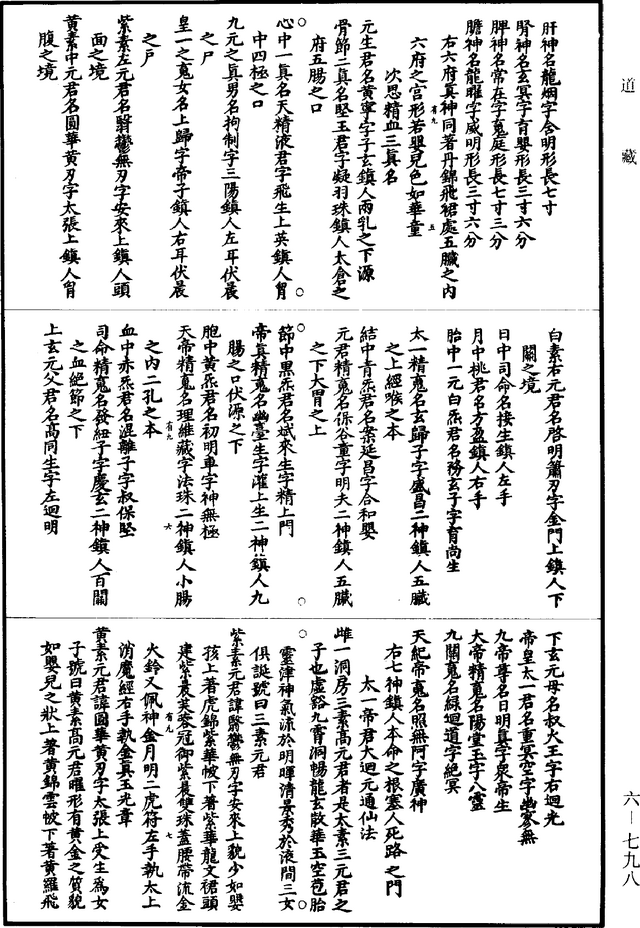 道藏
肝神名龍烟字含明形長七寸
腎神名玄冥字育嬰形長三寸六分
脾神名常在字䰟庭形長七寸三分
膽神名龍曜字威明形長三寸六分
右六府真神同著丹錦飛裙處五臟之内
六府之宫形若嬰兒色如華童
有九 五
次思精血三真名
元生君名黄寧字子玄鎮人兩乳之下源
骨節二真名堅玉君字凝羽珠鎮人太倉之
府五腸之口
心中一真名天精液君字飛生上英鎮人胷
中四極之口
九元之真男名拘制字三陽鎮人左耳伏晨
之户
皇一之䰟女名上歸字帝子鎮人右耳伏晨
之户
紫素左元君名翳鬱無刃字安來上鎮人頭
面之境
黄素中元君名圓華黄刃字太張上鎮人胷
腹之境
白素右元君名啓明蕭刃字金門上鎮人下
關之境
日中司命名接生鎮人左手
月中桃君名方盈鎮人右手
胎中一元白炁君名務玄子字育尚生
太一精䰟名玄歸子字盛昌二神鎮人五臟
之上經喉之本
結中青炁君名案延昌字合和嬰
元君精䰟名保谷童字明夫二神鎮人五臟
之下大胃之上
節中黑炁君名斌來生字精上門
帝真精䰟名幽臺生字灌上生二神鎮人九
腸之口伏源之下
胞中黄炁君名初明車字神無極
天帝精䰟名理維藏字法珠二神鎮人小腸
有九 六
之内二孔之本
血中赤炁君名混離子字叔保堅
司命精䰟名發紐子字慶玄二神鎮人百關
之血絶節之下
上玄元父君名高同生字左迴明
下玄元母名叔火王字右迴光
帝皇太一君名重冥空字幽寥無
九帝尊名日明真字衆帝生
大帝精䰟名陽堂王字八靈
九關䰟名緑迴道字絶冥
天紀帝䰟名照無阿字廣神
右七神鎮人本命之根塞人死路之門
太一帝君大迴元通仙法
雌一洞房三素高元君者是太素三元君之
子也虚豁九霄洞暢龍玄散華玉空苞胎
靈津神氣流於明暉清景秀於液間三女
俱誕號曰三素元君
紫素元君諱翳鬱無刃字安來上貌少如嬰
孩上著虎錦紫華帔下著紫華龍文裙頭
建紫嵗芙蓉冠御紫晨雙珠蓋腰帶流金
有九 七
火鈴又佩神金月明二虎符左手執太上
消魔經右手執金真玉光章
黄素元君諱圓華黄刃字太張上受生爲女
子號曰黄素高元君曜形有黄金之質貌
如嬰兒之狀上著黄錦雲帔下著黄羅飛
六—七九八